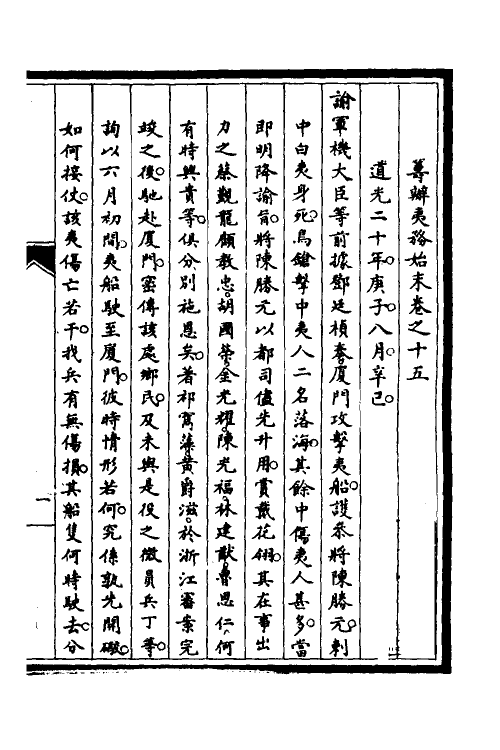 籌辦夷務始末卷之十五
道光二十年庚子八月辛巳
諭軍機大臣等前據鄧廷楨奏廈門攻擊夷船護參將陳勝元刺
中白夷身死鳥鎗擊中夷人二名落海其餘中傷夷人甚多當
即明降諭旨將陳勝元以都司儘先升用賞戴花翎其在事出
力之蔡觀龍顧教忠胡國榮金光耀陳光福林建猷魯思仁何
有時興貴等俱分別施恩矣著祁寯藻黃爵滋於浙江審案完
竣之後馳赴廈門密傳該處鄉民及未與是役之微員兵丁等
詢以六月初間夷船駛至廈門彼時情形若何究係孰先開礮
如何接仗該夷傷亡若干我兵有無傷損其船隻何時駛去分
一